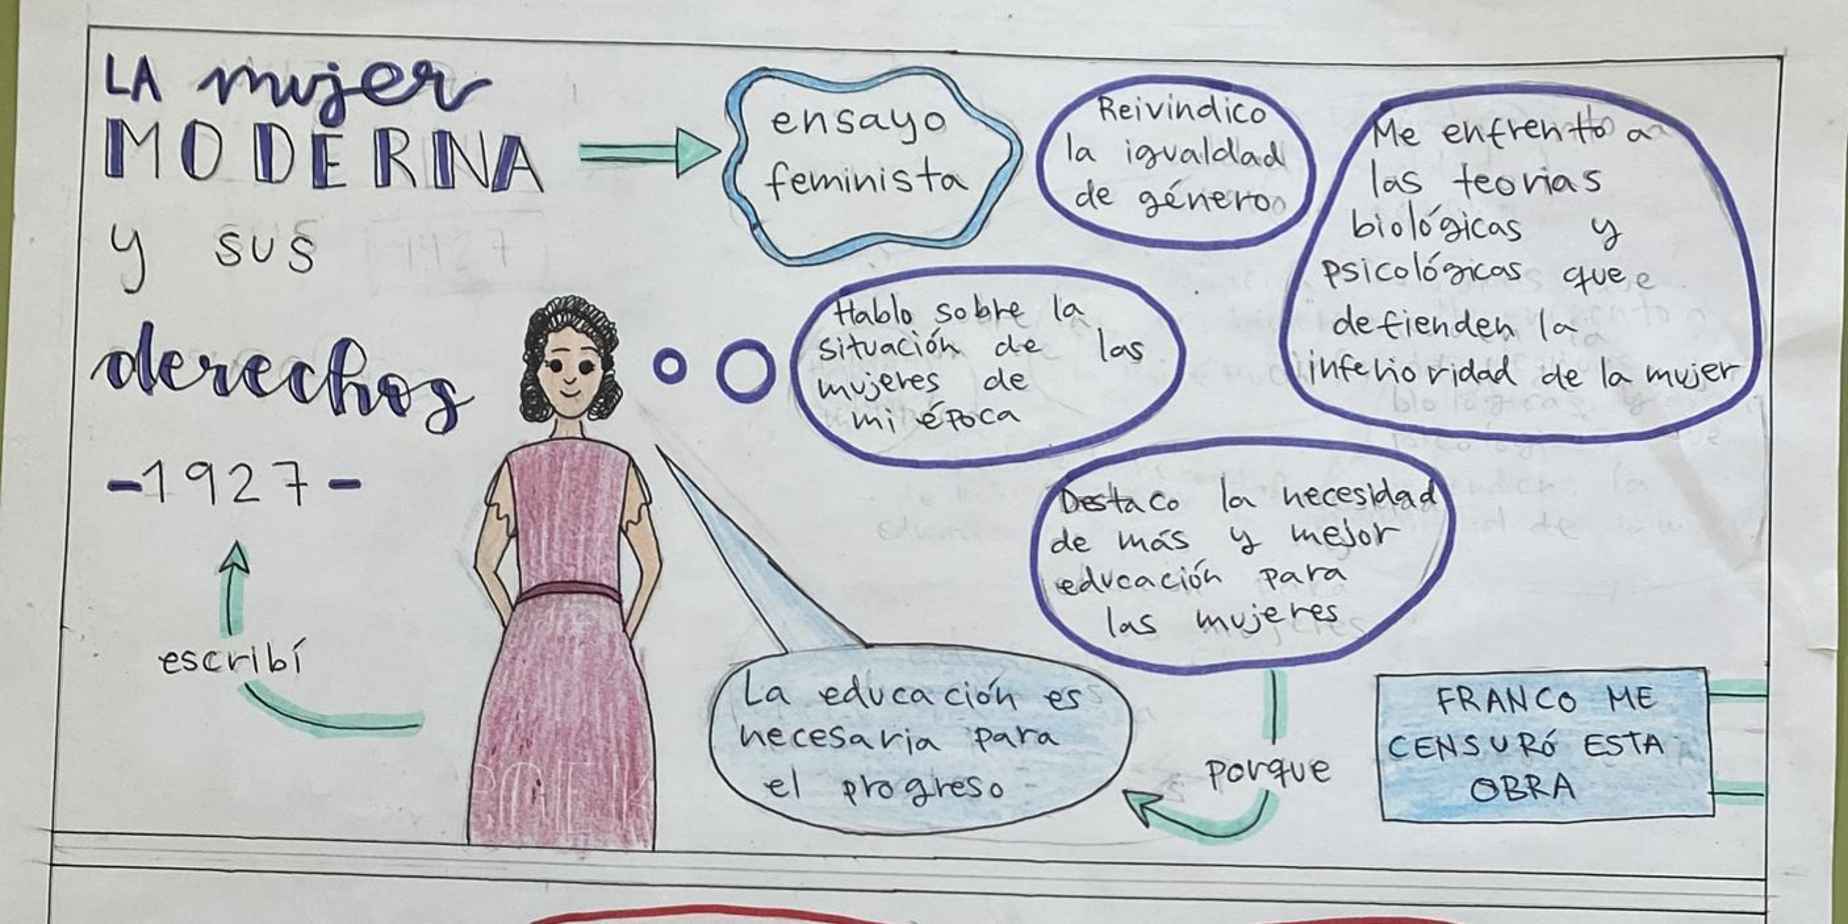 LA mujer
MODERNA
y sus
derechos
-1927-
escribí
ensayo
feminista
Reivindico
la igualdad
de género
Me enfrento a
las teorias
biológicas y
psicológicas que
defienden la
inferioridad de la mujer
Hablo sobre la
situación de las
mujeres de
mi época
Destaco la necesidad
de más y mejor
educación para
las mujeres
porque
La educación es
necesaria para
el progreso
FRANCO ME
CENSURÓ ESTA
OBRA